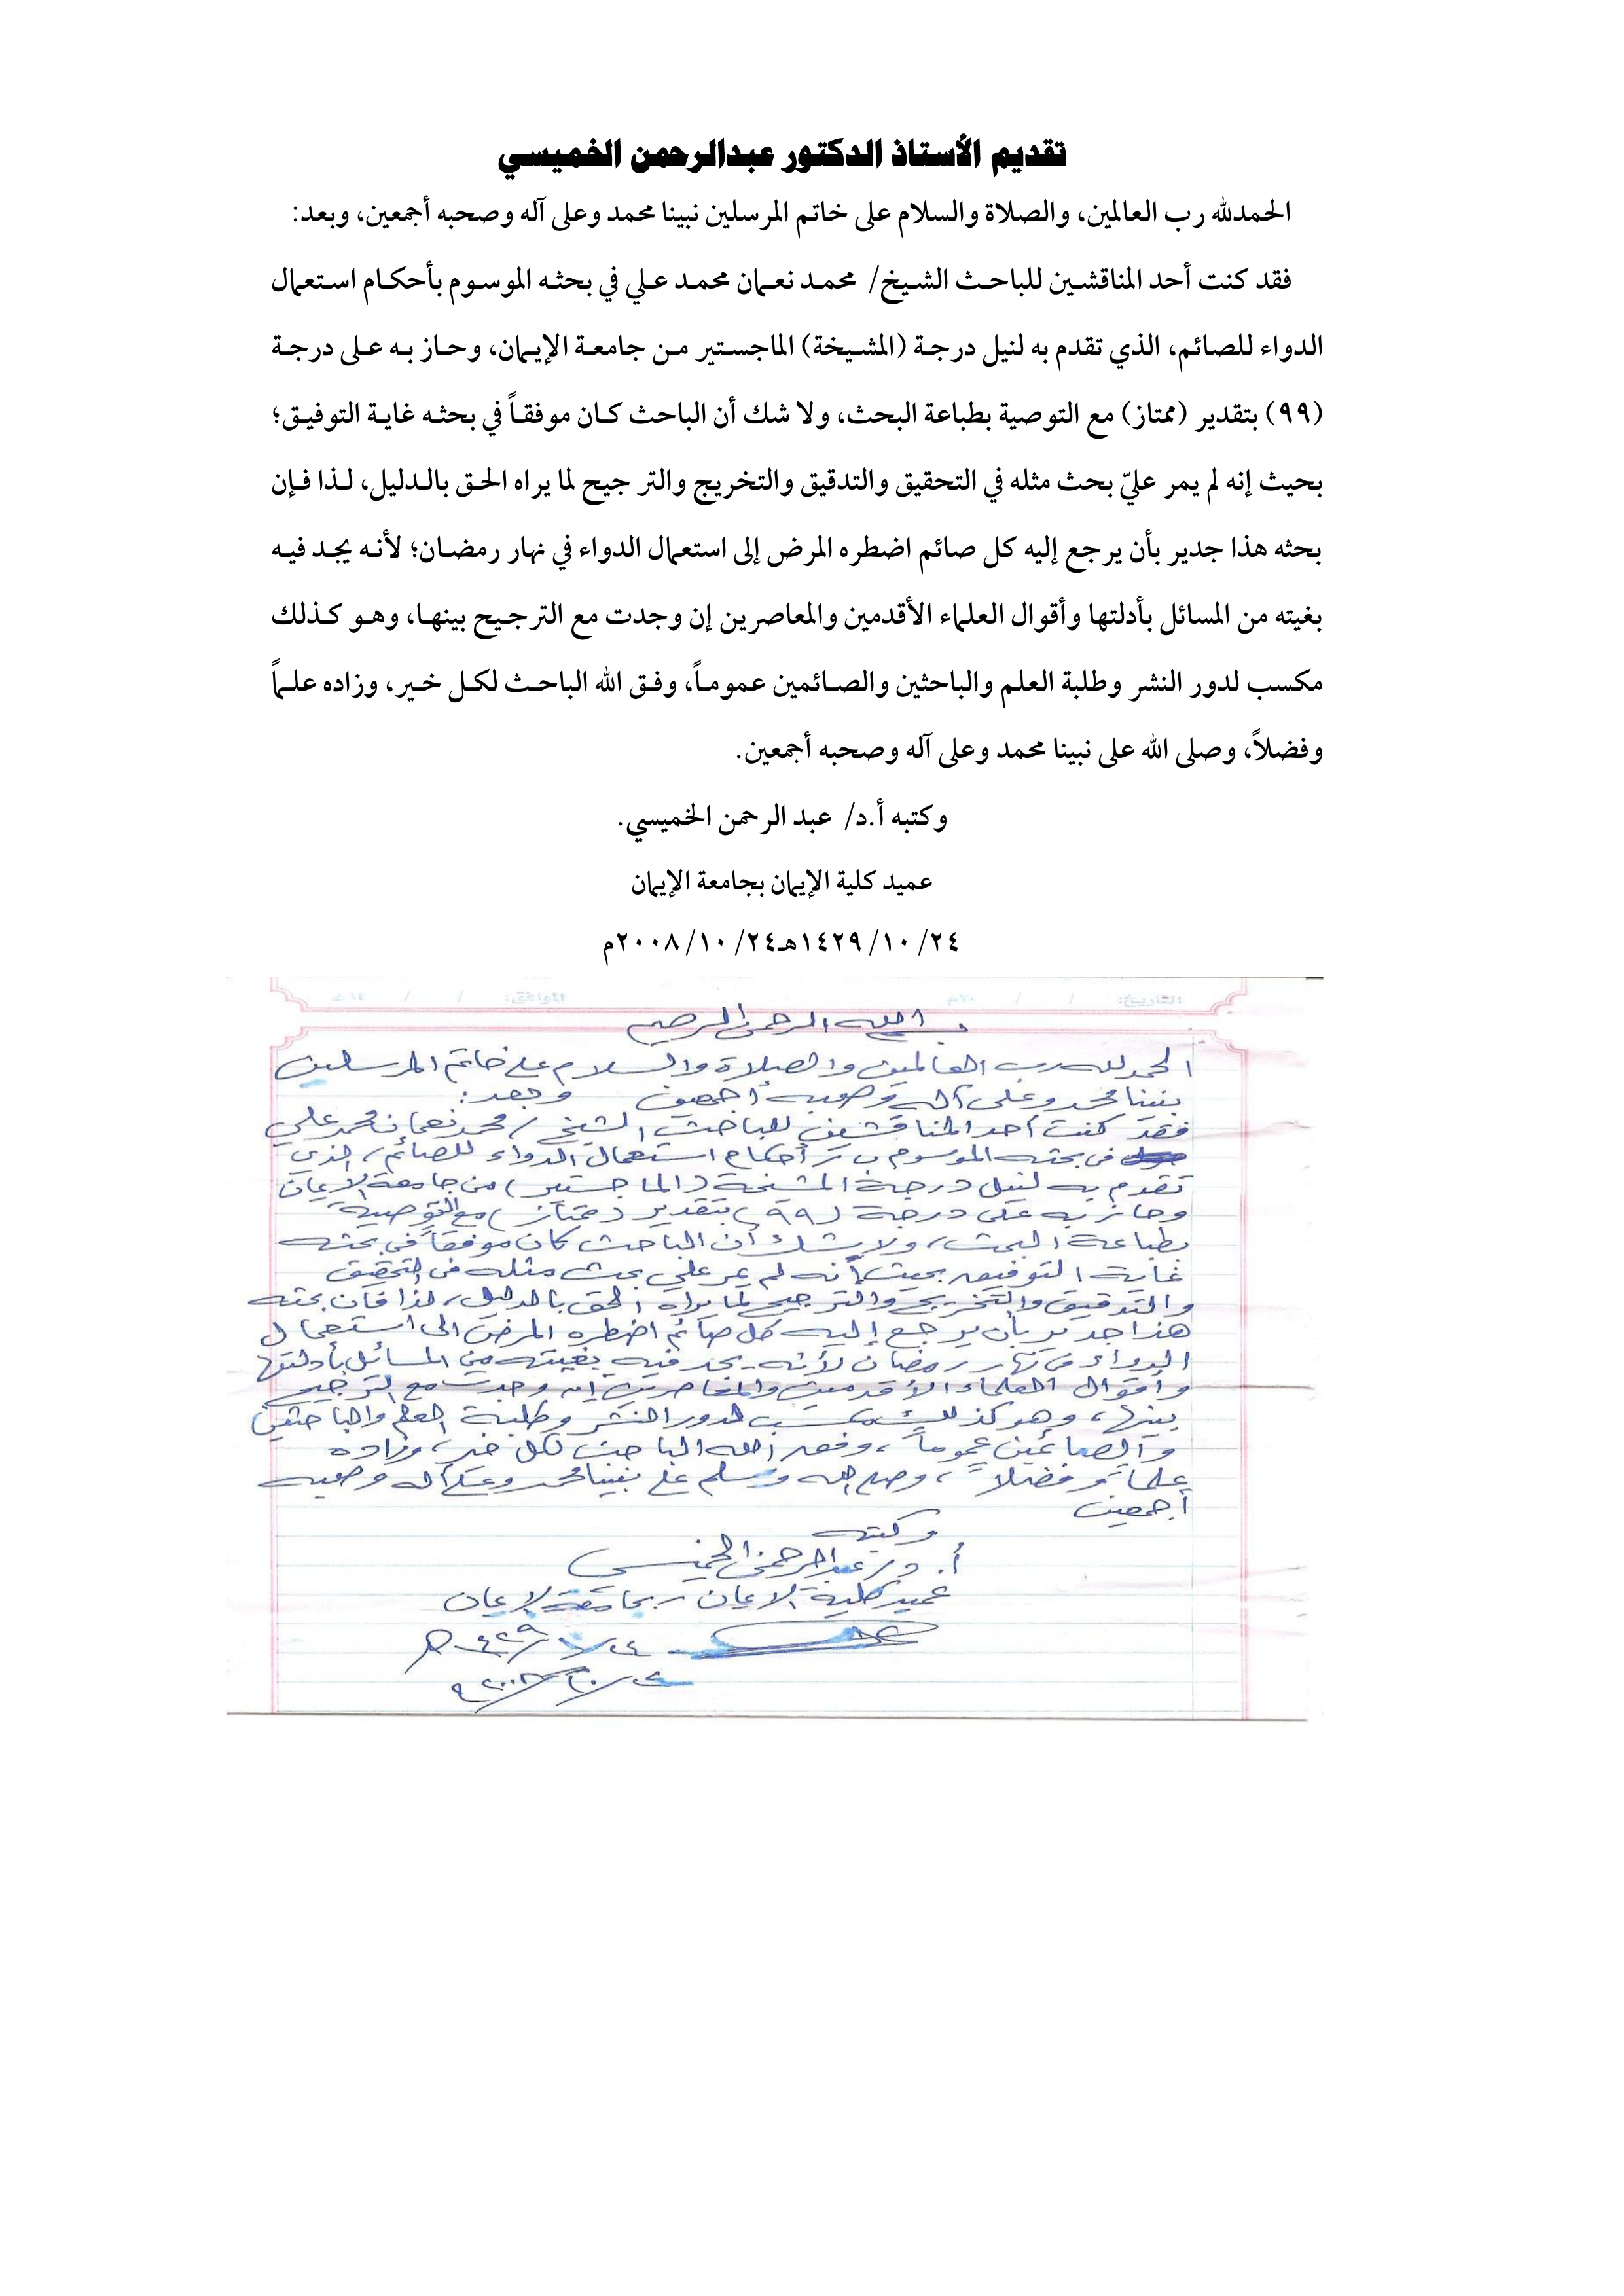 تقديم الأستاذ الدكتور عبدالرحمن الخميسي
الحمدلله رب العالمين، والصلاة والسلام على خاتم المرسلين نبينا محمد وعلى آله وصحبه أجمعين، وبعد:
فقد كنت أحد المناقشين للباحث الشيخ/ محمد نعمان محمد علي في بحثه الموسوم بأحكام استعمال
الدواء للصائم، الذي تقدم به لنيل درجة (المشيخة) الماجستير من جامعة الإيمان، وحاز به على درجة
(٩٩) بتقدير (ممتاز) مع التوصية بطباعة البحث، ولا شك أن الباحث كان موفقاً في بحثه غاية التوفيق؛
بحيث إنه لم يمر عليّ بحث مثله في التحقيق والتدقيق والتخريج والتر جيح لما يراه الحق بالدليل، لذا فإن
بحثه هذا جدير بأن يرجع إليه كل صائم اضطره المرض إلى استعمال الدواء في نهار رمضان؛ لأنه يجد فيه
بغيته من المسائل بأدلتها وأقوال العلماء الأقدمين والمعاصرين إن وجدت مع الترجيح بينها، وهو كذلك
مكسب لدور النشر وطلبة العلم والباحثين والصائمين عموماً، وفق الله الباحث لكل خير، وزاده علماً
وفضلاً، وصلى الله على نبينا محمد وعلى آله وصحبه أجمعين.
وكتبه أ.د/ عبد الرحمن الخميسي.
عميد كلية الإيمان بجامعة الإيمان
٢٤/ ١٠/ ١٤٢٩هـ٢٤/ ١٠/ ٢٠٠٨م
التاريخ: / / ٢٠م الموافق: / / ١٤هـ
بسم الله الرحمن الرحيم
الحمد لله رب العالمين والصلاة والسلام على خاتم المرسلين
نبينا محمد وعلى آله وصحبه أجمعين وبعد:
فقد كنت أحد المناقشين للباحث الشيخ/ محمد نعمان محمد علي
في بحثه الموسوم بـ/ أحكام استعمال الدواء للصائم، الذي
تقدم به لنيل درجة المشيخة (الماجستير) من جامعة الإيمان
وحاز به على درجة (٩٩) بتقدير (ممتاز) مع التوصية
بطباعة البحث، ولا شك أن الباحث كان موفقاً في بحثه
غاية التوفيق بحيث إنه لم يمر علي بحث مثله في التحقيق
والتدقيق والتخريج والترجيح لما يراه الحق بالدليل، لذا فإن بحثه
هذا جدير بأن يرجع إليه كل صائم اضطره المرض إلى استعمال
الدواء في نهار رمضان لأنه يجد فيه بغيته من المسائل بأدلتها
وأقوال العلماء الأقدمين والمعاصرين إن وجدت مع الترجيح
بينها، وهو كذلك مكسب لدور النشر وطلبة العلم والباحثين
والصائمين عموماً، وفق الله الباحث لكل خير، وزاده
علماً وفضلاً، وصلى الله وسلم على نبينا محمد وعلى آله وصحبه
أجمعين
وكتبه
أ. د/ عبدالرحمن الخميسي
عميد كلية الإيمان بجامعة الإيمان
٢٤/١٠/١٤٢٩هـ
٢٤/١٠/٢٠٠٨م